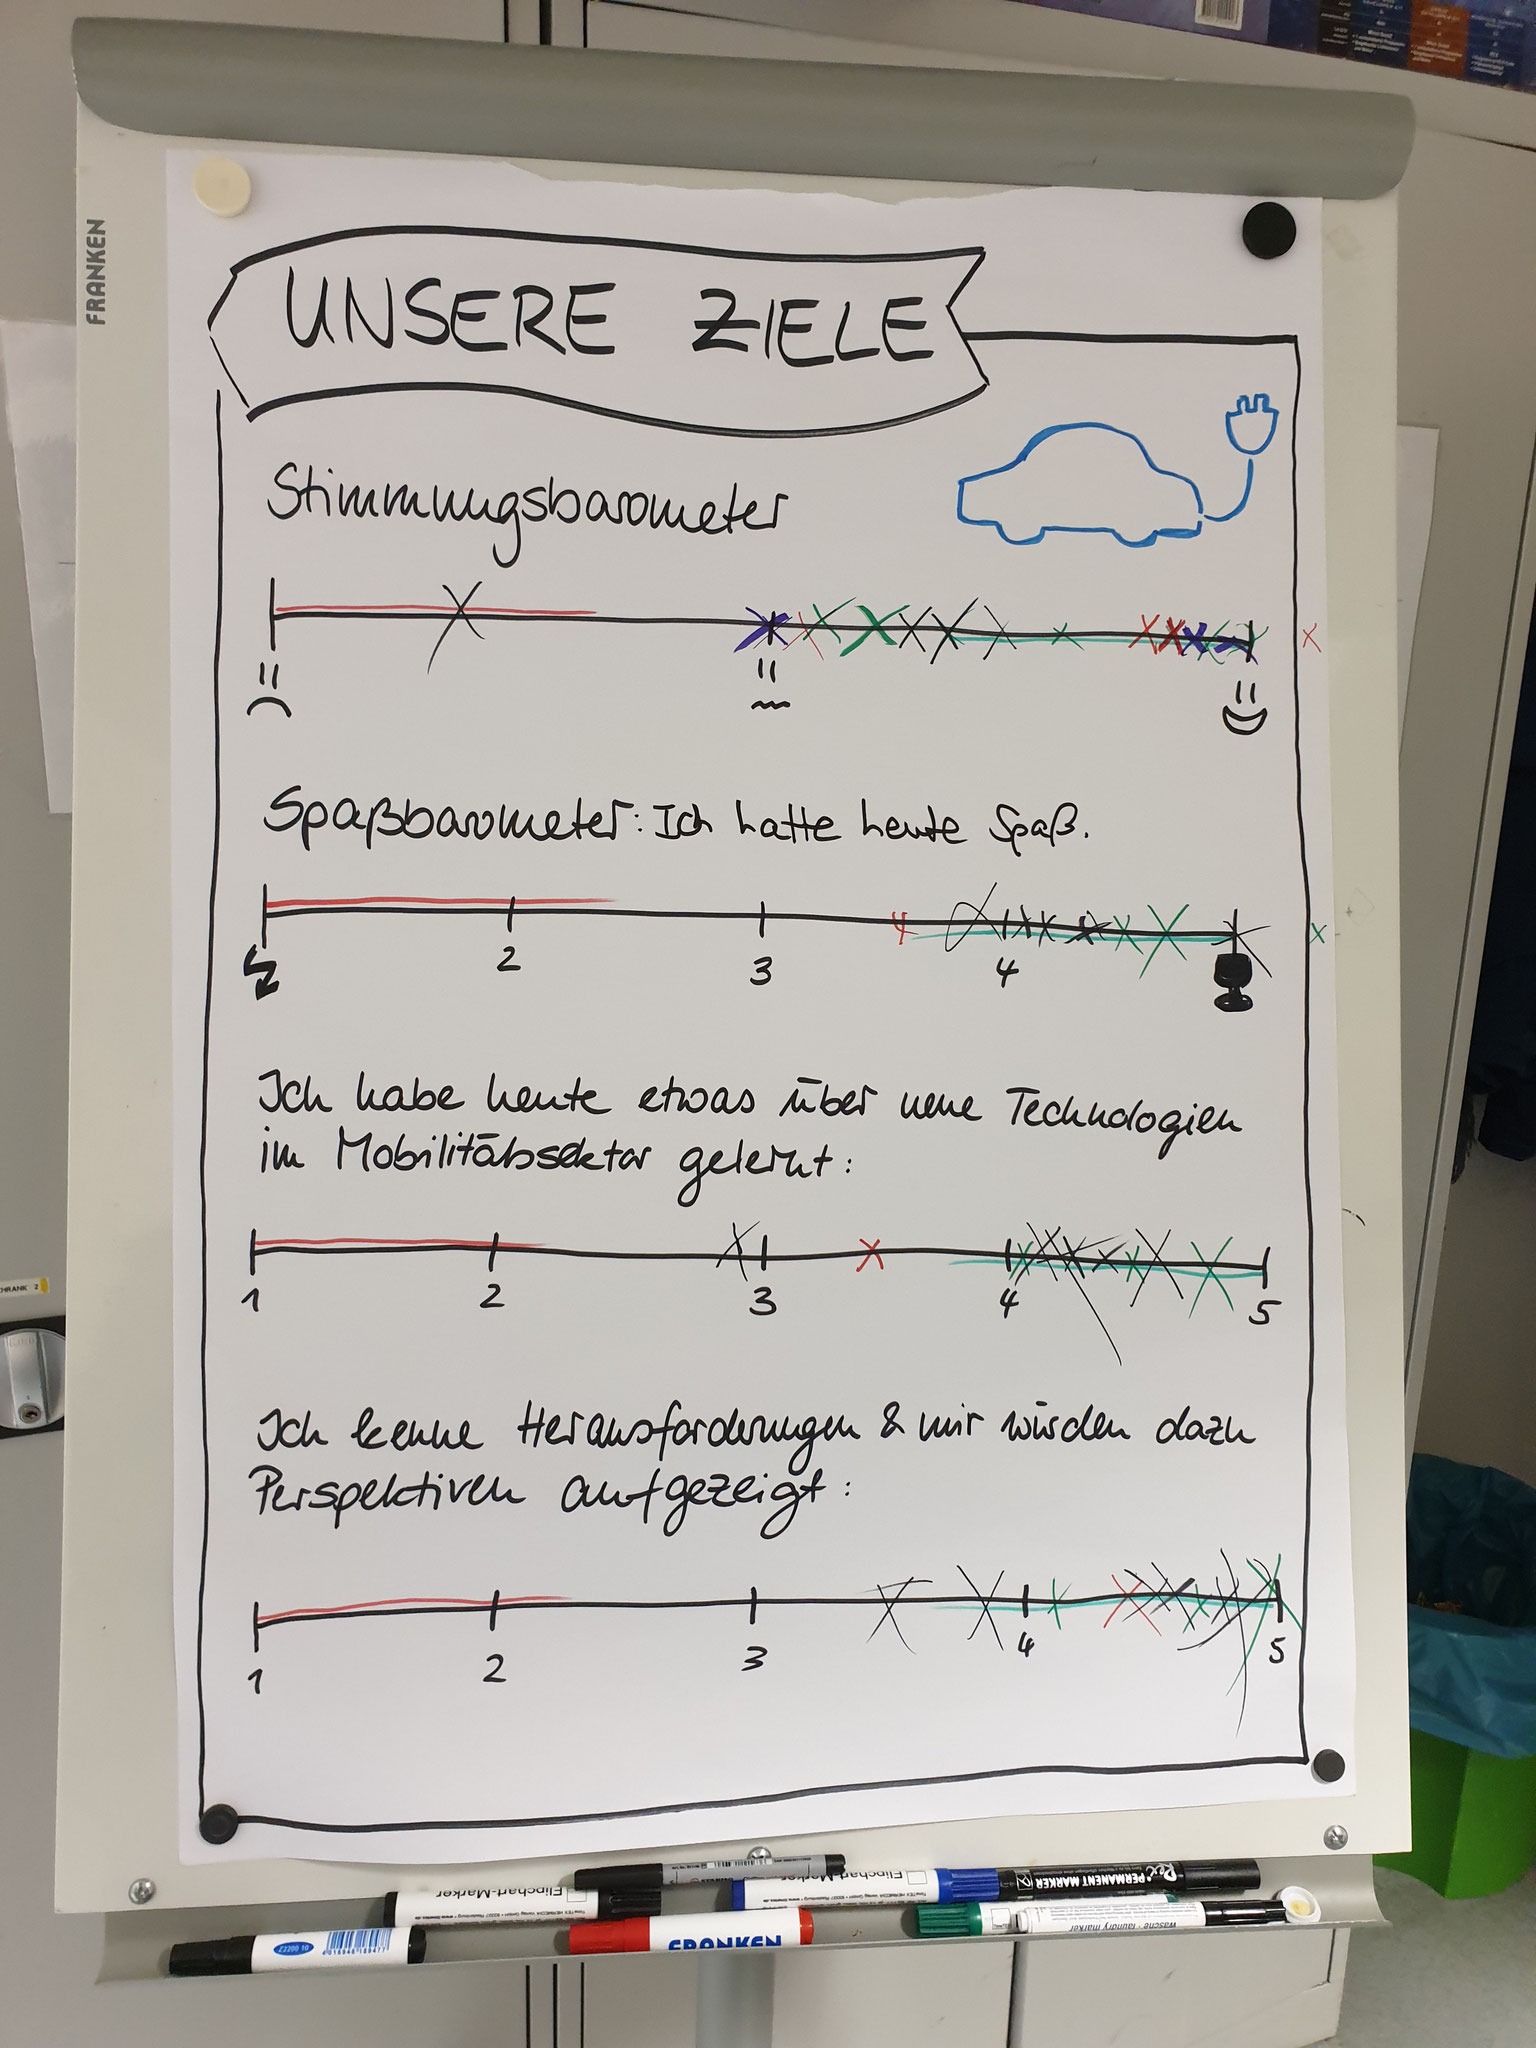 FRANKEN
UNSERE ZIELE
Stimmungsbarometer
Spaßbarometer: Ich hatte heute Spaß.
2 3 4
Ich habe heute etwas über neue Technologien
im Mobilitätssektor gelernt:
1 2 3 4 5
Ich kenne Herausforderungen & mir würden dazu
Perspektiven aufgezeigt:
1 2 3 4 5
Flipchart-Marker
Flipchart-Marker
Rex PERMANENT MARKER
wäsche - laundry marker
Z2200 10
FRANKEN